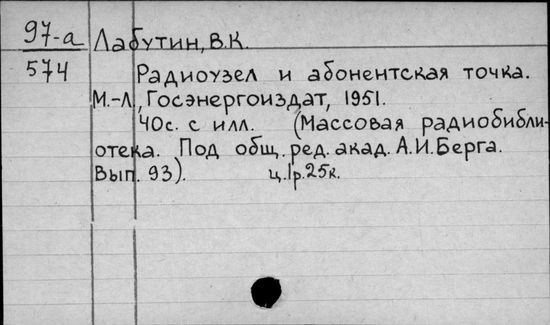 97-а Лабутин, В.К.
574
Радиоузел и абонентская точка.
М.-Л., Госэнергоиздат, 1951.
40с. с илл. (Массовая радиобибли-
отека. Под общ. ред. акад. А.И. Берга.
Вып. 93). ц. 1р. 25к.